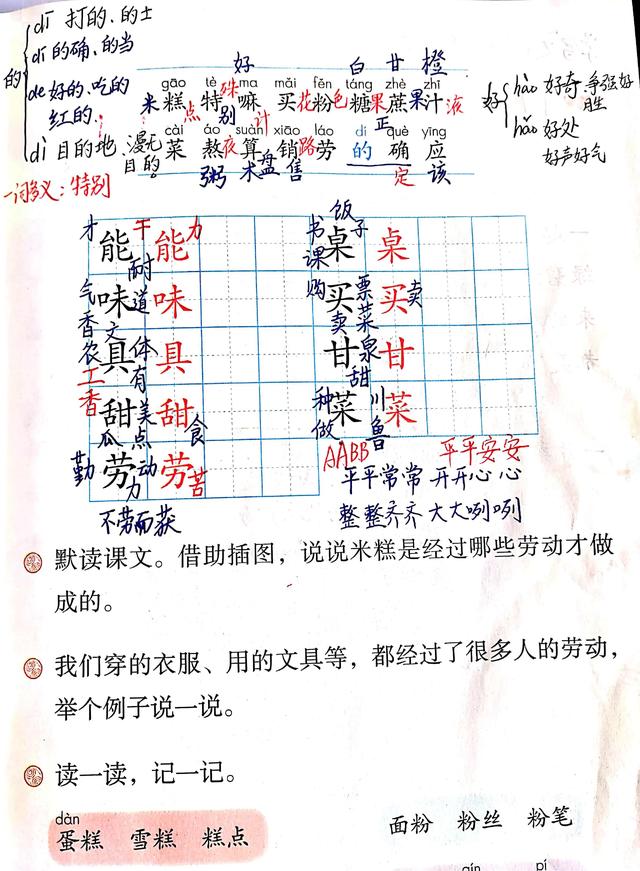 的
dī 打的、的士
dí 的确、的当
de 好的、吃的
红的、
dì 目的地、漫无目的。
一词多义：特别
好 hào 好奇、争强好胜
hǎo 好处
好声好气
好 白 甘 橙
gāo tè ma mǎi fěn táng zhè zhī
米糕点 特殊嘛 买花粉色糖果蔗果汁液
别 计 正
cài áo suàn xiāo láo dí què yīng
菜 熬夜算 销路劳 的 确 应
粥 术盘 售 定 该
才 能 干 能 力
耐
气 味 道 味
香 文
农 具 体 具
工 有
香 甜 美 甜 食
瓜 点
勤 劳 动 劳 苦
力
不劳而获
饭
书 桌 子 桌
课
购 买 票 买 卖
卖 菜
甘 泉 甘
甜
种 菜 川 菜
做 鲁
AABB 平平安安
平平常常 开开心心
整整齐齐 大大咧咧
默读课文。借助插图，说说米糕是经过哪些劳动才做
成的。
我们穿的衣服、用的文具等，都经过了很多人的劳动，
举个例子说一说。
读一读，记一记。
dàn
蛋糕 雪糕 糕点
面粉 粉丝 粉笔
pí